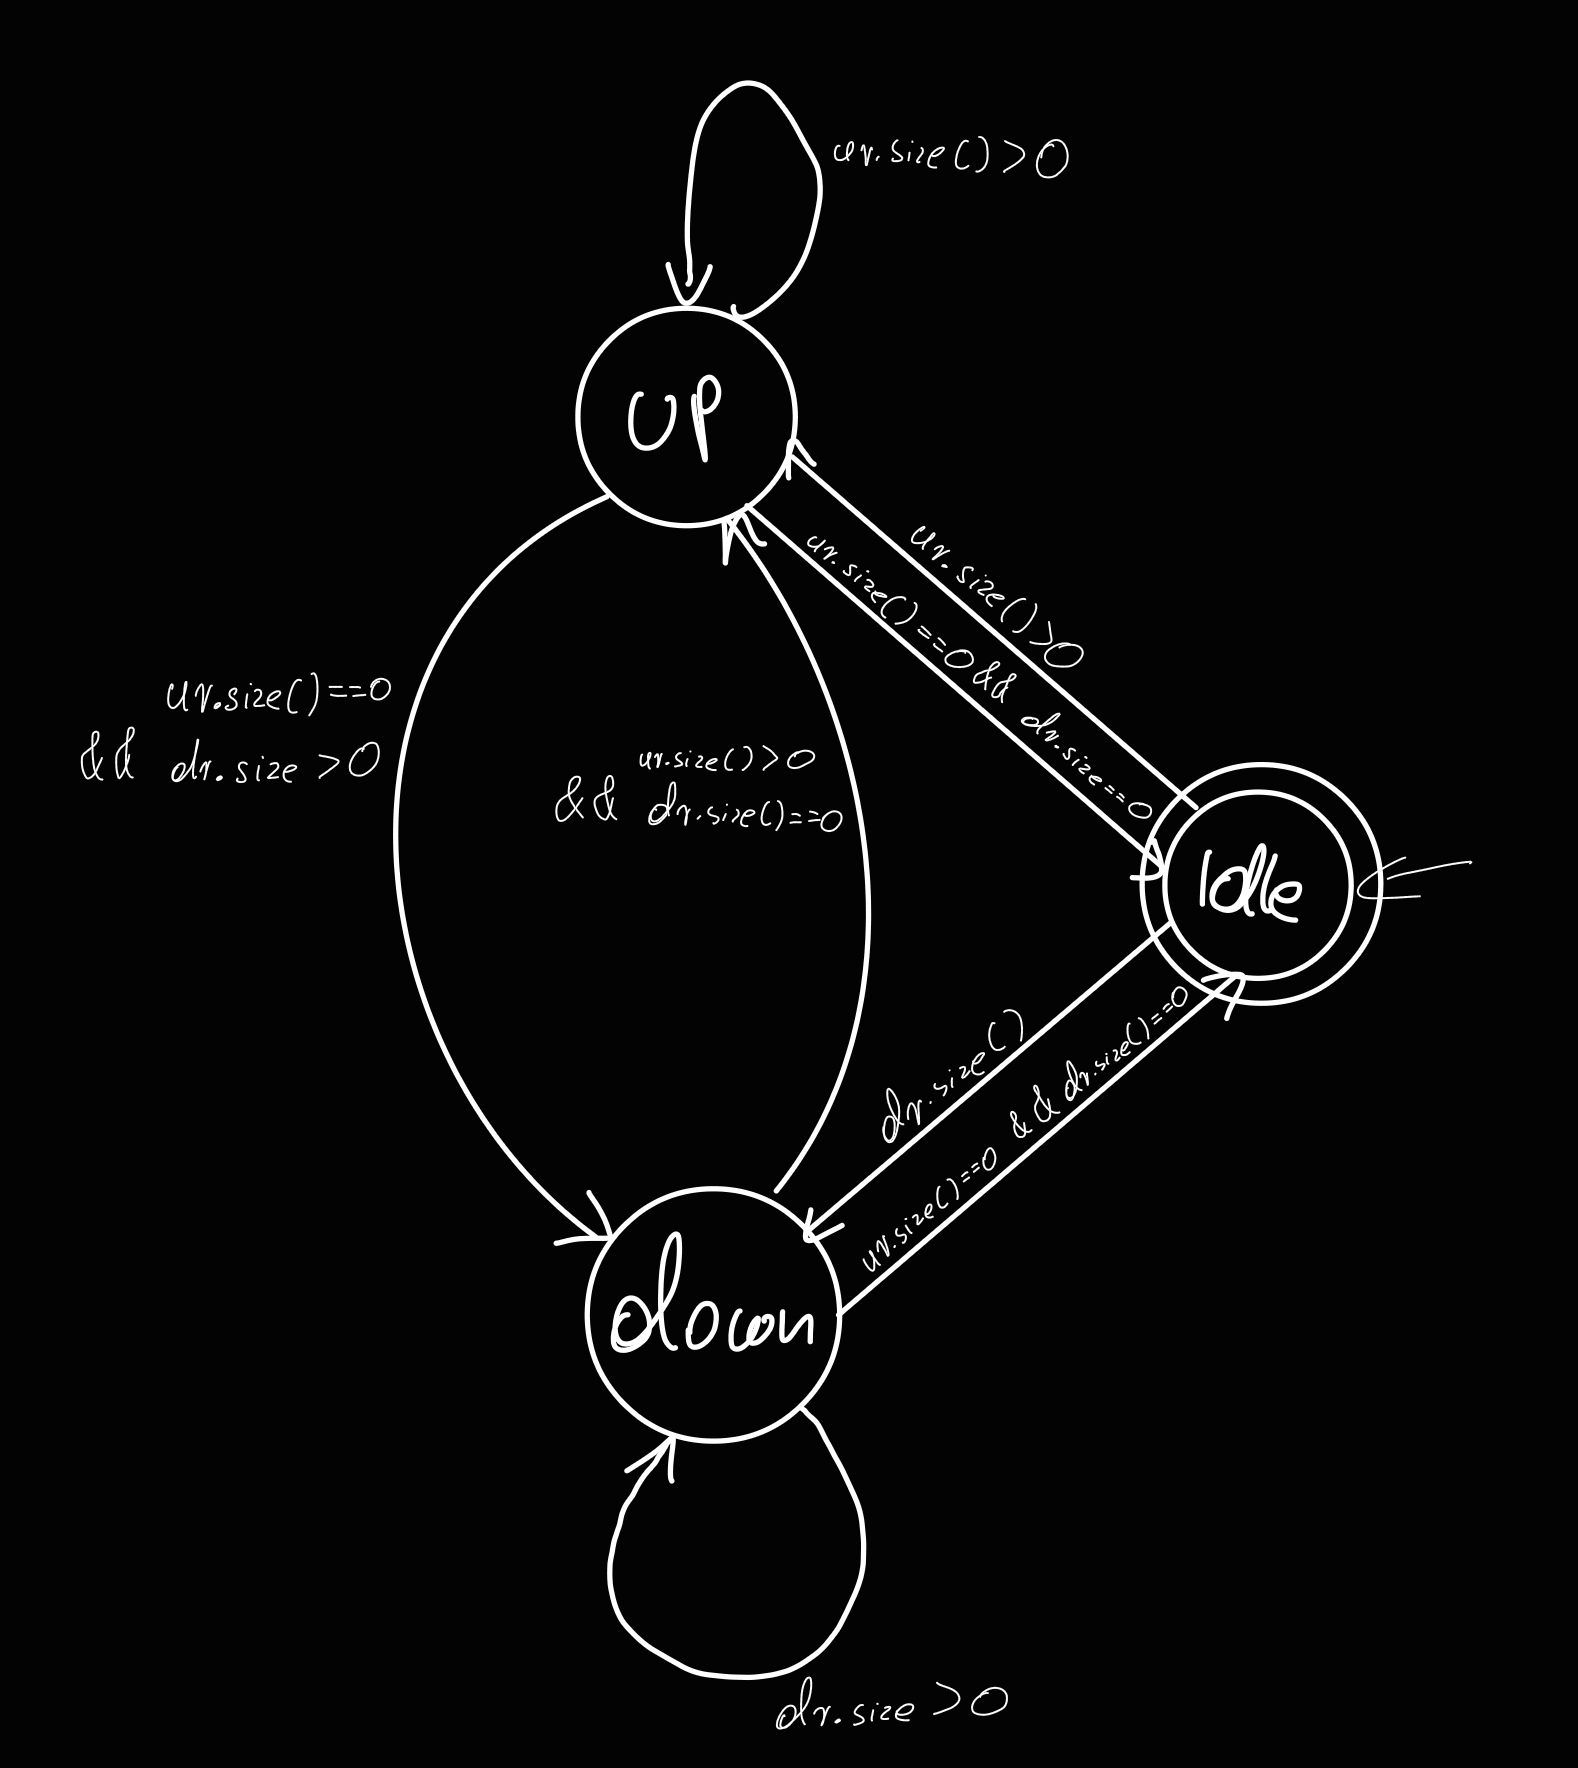 ur.size()>0
up
ur.size()>0
ur.size()==0 && dr.size==0
ur.size()==0
&& dr.size >0
ur.size()>0
&& dr.size()==0
Idle
dr.size()
ur.size()==0 && dr.size()==0
down
dr.size >0